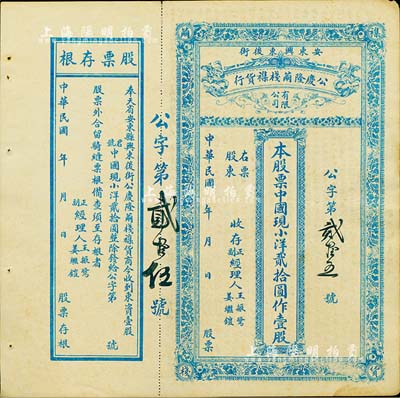 安東興東後街
公慶隆蔴棧雜貨行
有限公司
公字第貳拾五號
本股票中國現小洋貳拾圓作壹股
右股票股東 收存
正經理人王振鷺
副經理人姜繼鎧
中華民國 年 月 日 股票
公字第貳拾伍號
股票存根
奉天省安東縣興東後街公慶隆蔴棧雜貨商今收到東資壹股
名號 中國現小洋貳拾圓整除發給公字第 號
股票外合留騎縫票根備查須至存根者
正經理人王振鷺
副經理人姜繼鎧
中華民國 年 月 日 股票存根